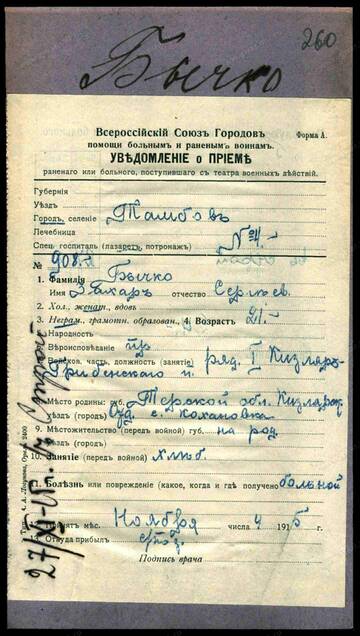 260
Бычко
Всероссійскій Союзъ Городовъ
Форма А.
помощи больнымъ и раненымъ воинамъ.
УВѢДОМЛЕНІЕ о ПРІЕМѢ
раненаго или больного, поступившаго съ театра военныхъ дѣйствій.
Губернія
Уѣздъ
Городъ, селеніе Тамбовъ
Лечебница
Спец. госпиталь (лазаретъ, потронажъ) №
№ 908
1. Фамилія Бычко
Имя Захаръ отчество Сергѣев.
2. Хол., женат., вдовъ
3. Неграм., грамотн. образован., 4. Возрастъ 21
Народность
Вѣроисповѣданіе пр
Войсков. часть, должность (занятіе) ряд. I Кизляро-
Гребенскаго п.
Мѣсто родины: губ. Терской обл. Кизлярск
уѣздъ (городъ) с. Кохановка
9. Мѣстожительство (передъ войной) губ. на род.
уѣздъ (городъ)
10. Занятіе (передъ войной) хлѣб
Болѣзнь или поврежденіе (какое, когда и гдѣ получено) больной
мѣс. Ноября числа 4 1915 г.
Откуда прибылъ
Подпись врача